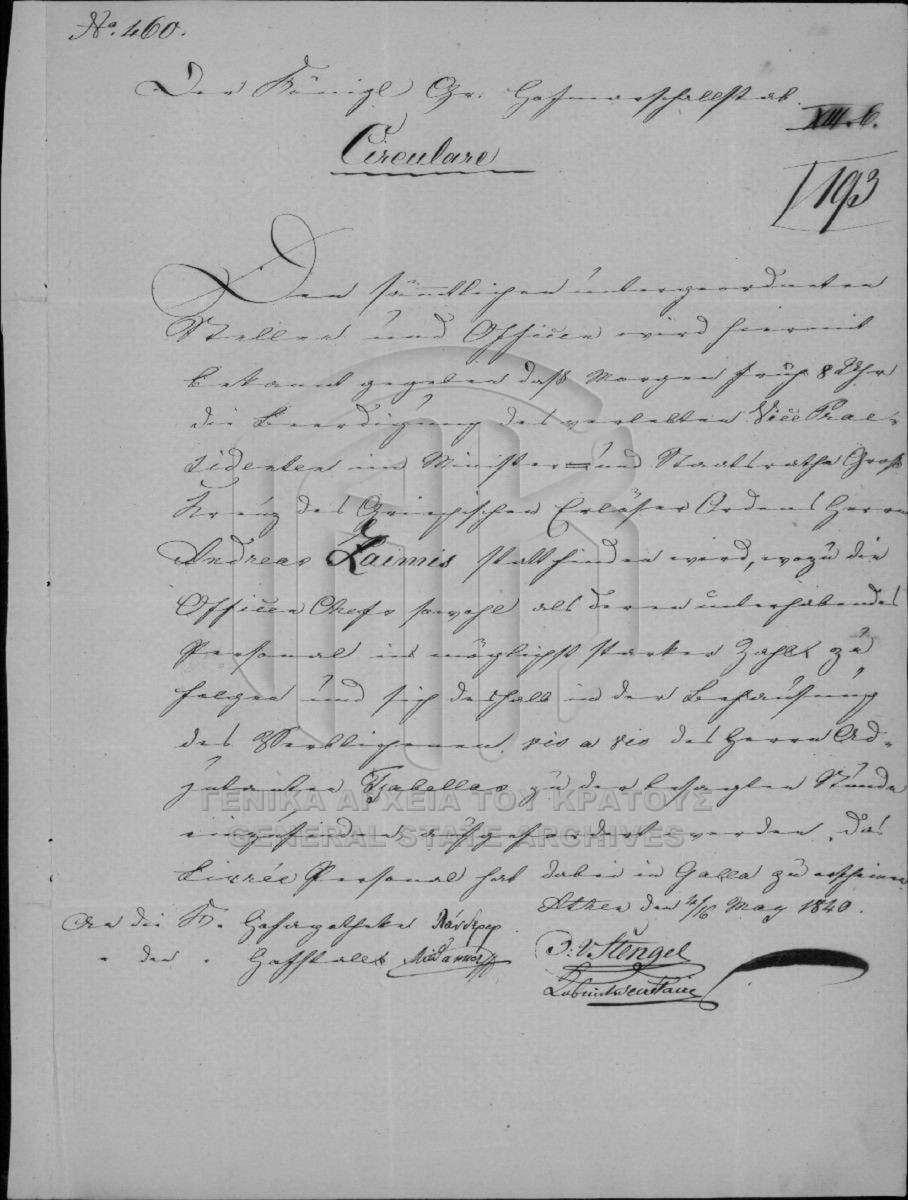 No. 460.
Der Königl Gr. Hofmarschallstab.
XIII. 6.
Circulare
I/193
Den sämtlichen untergeordneten
Stellen und Officen wird hiermit
bekannt gegeben daß Morgen früh 8 Uhr
die Beerdigung des verlebten Vice Prae-
sidenten im Minister- und Staatsrathe Groß
Kreuz des Griechischen Erlöser Ordens Herrn
Andreas Zaimis statt finden wird, wozu die
Officen Chefs sowohl als deren unterhabendes
Personal in möglichst starker Zahl zu
folgen und sich deshalb in der Behausung
des Verblichenen vis a vis des Herrn Ad-
jutanten Tzabellas zu der besagten Stunde
einzufinden aufgefordert werden. Das
Livrée Personal hat dabei in Galla zu erscheinen
Athen den 4/16 May 1840.
An die K. Hofapotheke Λάνδερερ
" den " Hofstall
D. v Stengel
ΓΕΝΙΚΑ ΑΡΧΕΙΑ ΤΟΥ ΚΡΑΤΟΥΣ
GENERAL STATE ARCHIVES